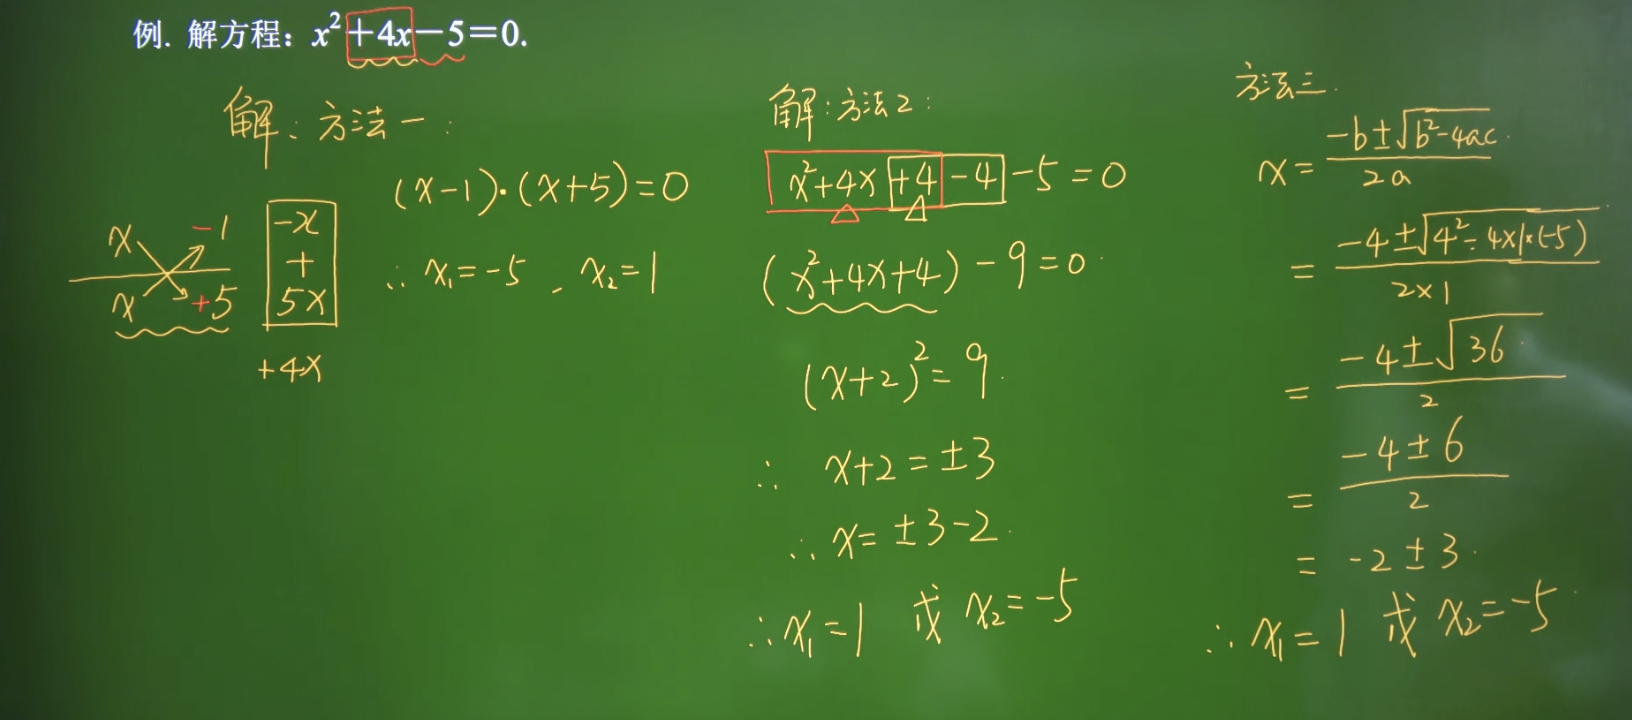 例. 解方程：x²+4x−5=0.
解：方法一：
(x-1)·(x+5)=0
x -1
x +5
-x
+
5x
+4x
∴ x₁=-5 . x₂=1
解：方法2：
x²+4x+4-4-5=0
(x²+4x+4)-9=0
(x+2)²=9.
∴ x+2=±3
∴ x=±3-2.
∴ x₁=1 或 x₂=-5
方法三.
x= (-b±√(b²-4ac))/(2a)
= (-4±√(4²-4×1×(-5)))/(2×1)
= (-4±√36)/2
= (-4±6)/2
= -2±3.
∴ x₁=1 或 x₂=-5